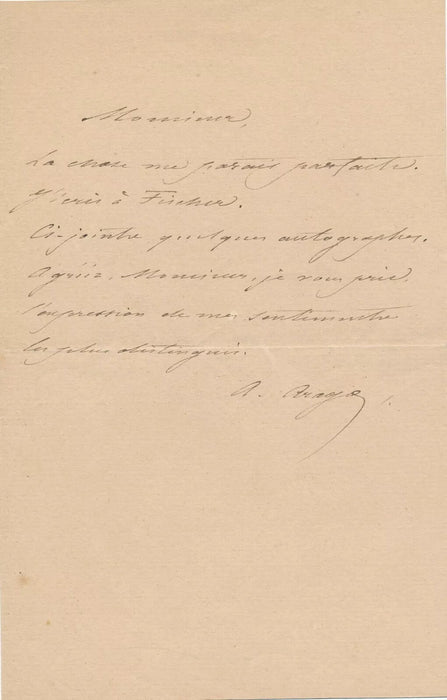 Monsieur,
La chose me parait parfaite.
J'écris à Fischer.
Ci-jointe quelques autographes.
Agréez, Monsieur, je vous prie,
l'expression de mes sentiments
les plus distingués.
A. Arago